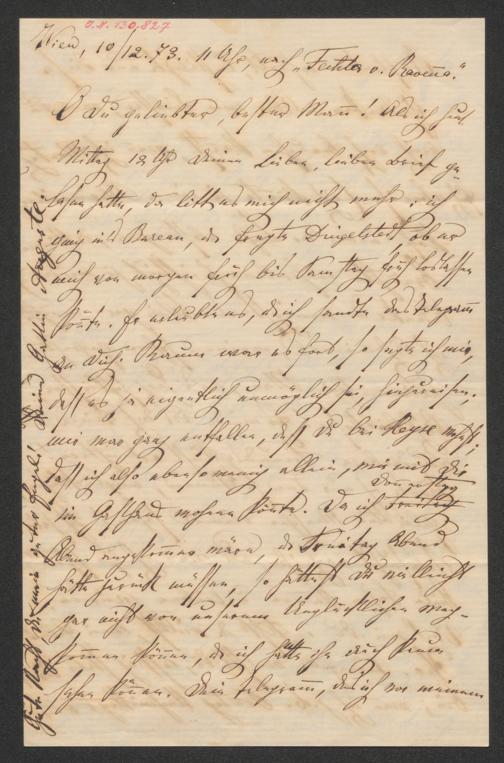 J.N. 130.827
Wien, 10/12.73. 11 Uhr, nach „Fechter v. Ravenna."
O Du geliebter, bester Mann! Als ich heut
Mittag 12 Uhr Deinen lieben, lieben Brief ge-
lesen hatte, da litt es mich nicht mehr; ich
ging in's Bureau, u. fragte Dingelstedt, ob er
mich von morgen früh bis Samstag früh loslassen
könnte. Er erlaubte es, u. ich sandte das Telegramm
an Dich. Kaum war es fort, so sagte ich mir,
daß es ja eigentlich unmöglich sei, hinzureisen.
mir war ganz entfallen, daß Du bei Heyse wohnst;
daß ich also ebensowenig allein, wie mit Dir
im Gasthaus wohnen könnte. Da ich Donnerstag
Abend angekommen wäre, u. Freitag Abend
hätte zurück müssen, so hättest Du vielleicht
gar nicht von unserem weg-
kommen können, u. ich hätte ihn auch kaum
sehen können. Dein Telegramm, das ich vor meinem
Gute Nacht, Du mein guter Engel! Deine Gattin Auguste.